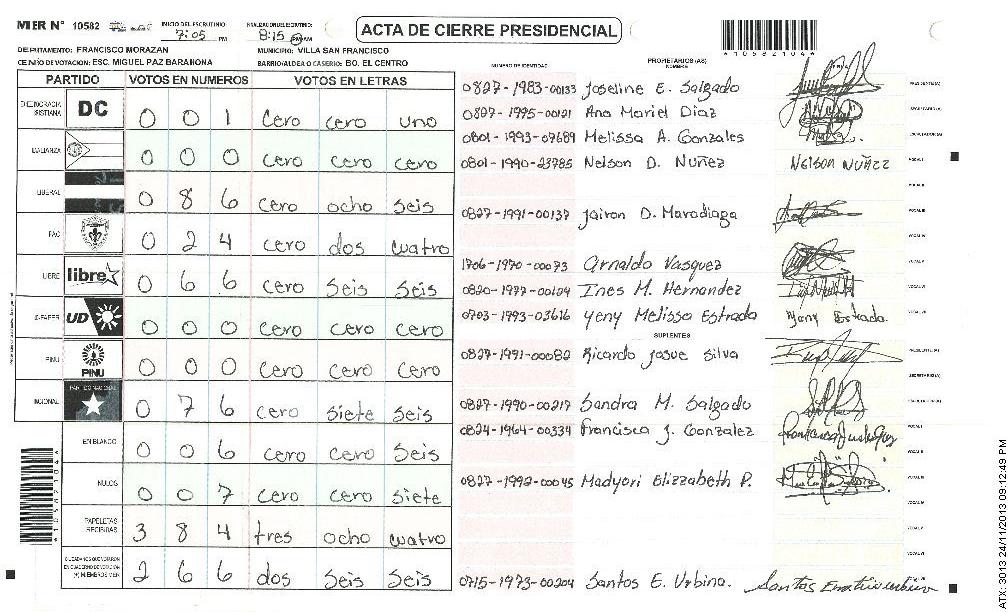 MER N° 10582
INICIO DEL ESCRUTINIO 7:05 PM
FINALIZACION ESCRUTINIO: 8:15 PM
ACTA DE CIERRE PRESIDENCIAL
*10582104*
DEPARTAMENTO: FRANCISCO MORAZAN
MUNICIPIO: VILLA SAN FRANCISCO
CENTRO DE VOTACION: ESC. MIGUEL PAZ BARAHONA
BARRIO/ALDEA O CASERIO: BO. EL CENTRO
PARTIDO VOTOS EN NUMEROS VOTOS EN LETRAS
DEMOCRACIA CRISTIANA DC 0 0 1 cero cero uno
ALIANZA 0 0 0 cero cero cero
LIBERAL 0 8 6 cero ocho seis
PAC 0 2 4 cero dos cuatro
LIBRE libre 0 6 6 cero seis seis
UD 0 0 0 cero cero cero
PINU PINU 0 0 0 cero cero cero
NACIONAL PARTIDO NACIONAL 0 7 6 cero siete seis
EN BLANCO 0 0 6 cero cero seis
NULOS 0 0 7 cero cero siete
PAPELETAS RECIBIDAS 3 8 4 tres ocho cuatro
CIUDADANOS QUE VOTARON EN CUADERNO DE VOTACION (+) MIEMBROS MER 2 6 6 dos seis seis
NUMERO DE IDENTIDAD PROPIETARIOS (AS) NOMBRE FIRMA
0827-1983-00133 Joseline E. Salgado PRESIDENTE(A)
0827-1995-00121 Ana Mariel Diaz SECRETARIO(A)
0801-1993-07689 Melissa A. Gonzales ESCRUTADOR(A)
0801-1990-23785 Nelson D. Nuñez Nelson Nuñez VOCAL I
VOCAL II
0827-1991-00137 Jairon D. Maradiaga VOCAL III
VOCAL IV
1706-1970-00073 Arnaldo Vasquez VOCAL V
0820-1977-00109 Ines M. Hernandez VOCAL VI
0703-1993-03616 Yeny Melissa Estrada Yeny Estrada VOCAL VII
SUPLENTES
0827-1991-00082 Ricardo Josue Silva PRESIDENTE(A)
SECRETARIO(A)
0827-1990-00217 Sandra M. Salgado ESCRUTADOR(A)
0824-1964-00334 Francisca J. Gonzalez VOCAL I
VOCAL II
0827-1992-00045 Madyori Elizzabeth P. VOCAL III
VOCAL IV
VOCAL V
VOCAL VI
0715-1973-00204 Santos E. Urbina.
*10582104*
ATX-3013 24/11/2013 09:12:49 PM